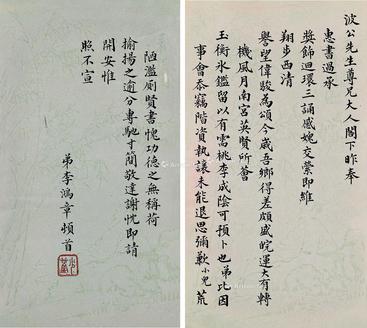 波公先生尊兄大人閣下昨奉
惠書過承
獎飾迴環三誦感媿交縈即維
翔步西清
譽望偉駿為頌今歲吾鄉得差頗盛皖運大有轉
機風月南宮英賢所會
玉衡氷鑑留以有需桃李成陰可預卜也弟比因
事會忝竊階資執讓未能退思彌歉小兒荒
陋濫廁賢書愧功德之無稱荷
揄揚之逾分專馳寸簡敬達謝忱即請
開安惟
照不宣
弟李鴻章頓首